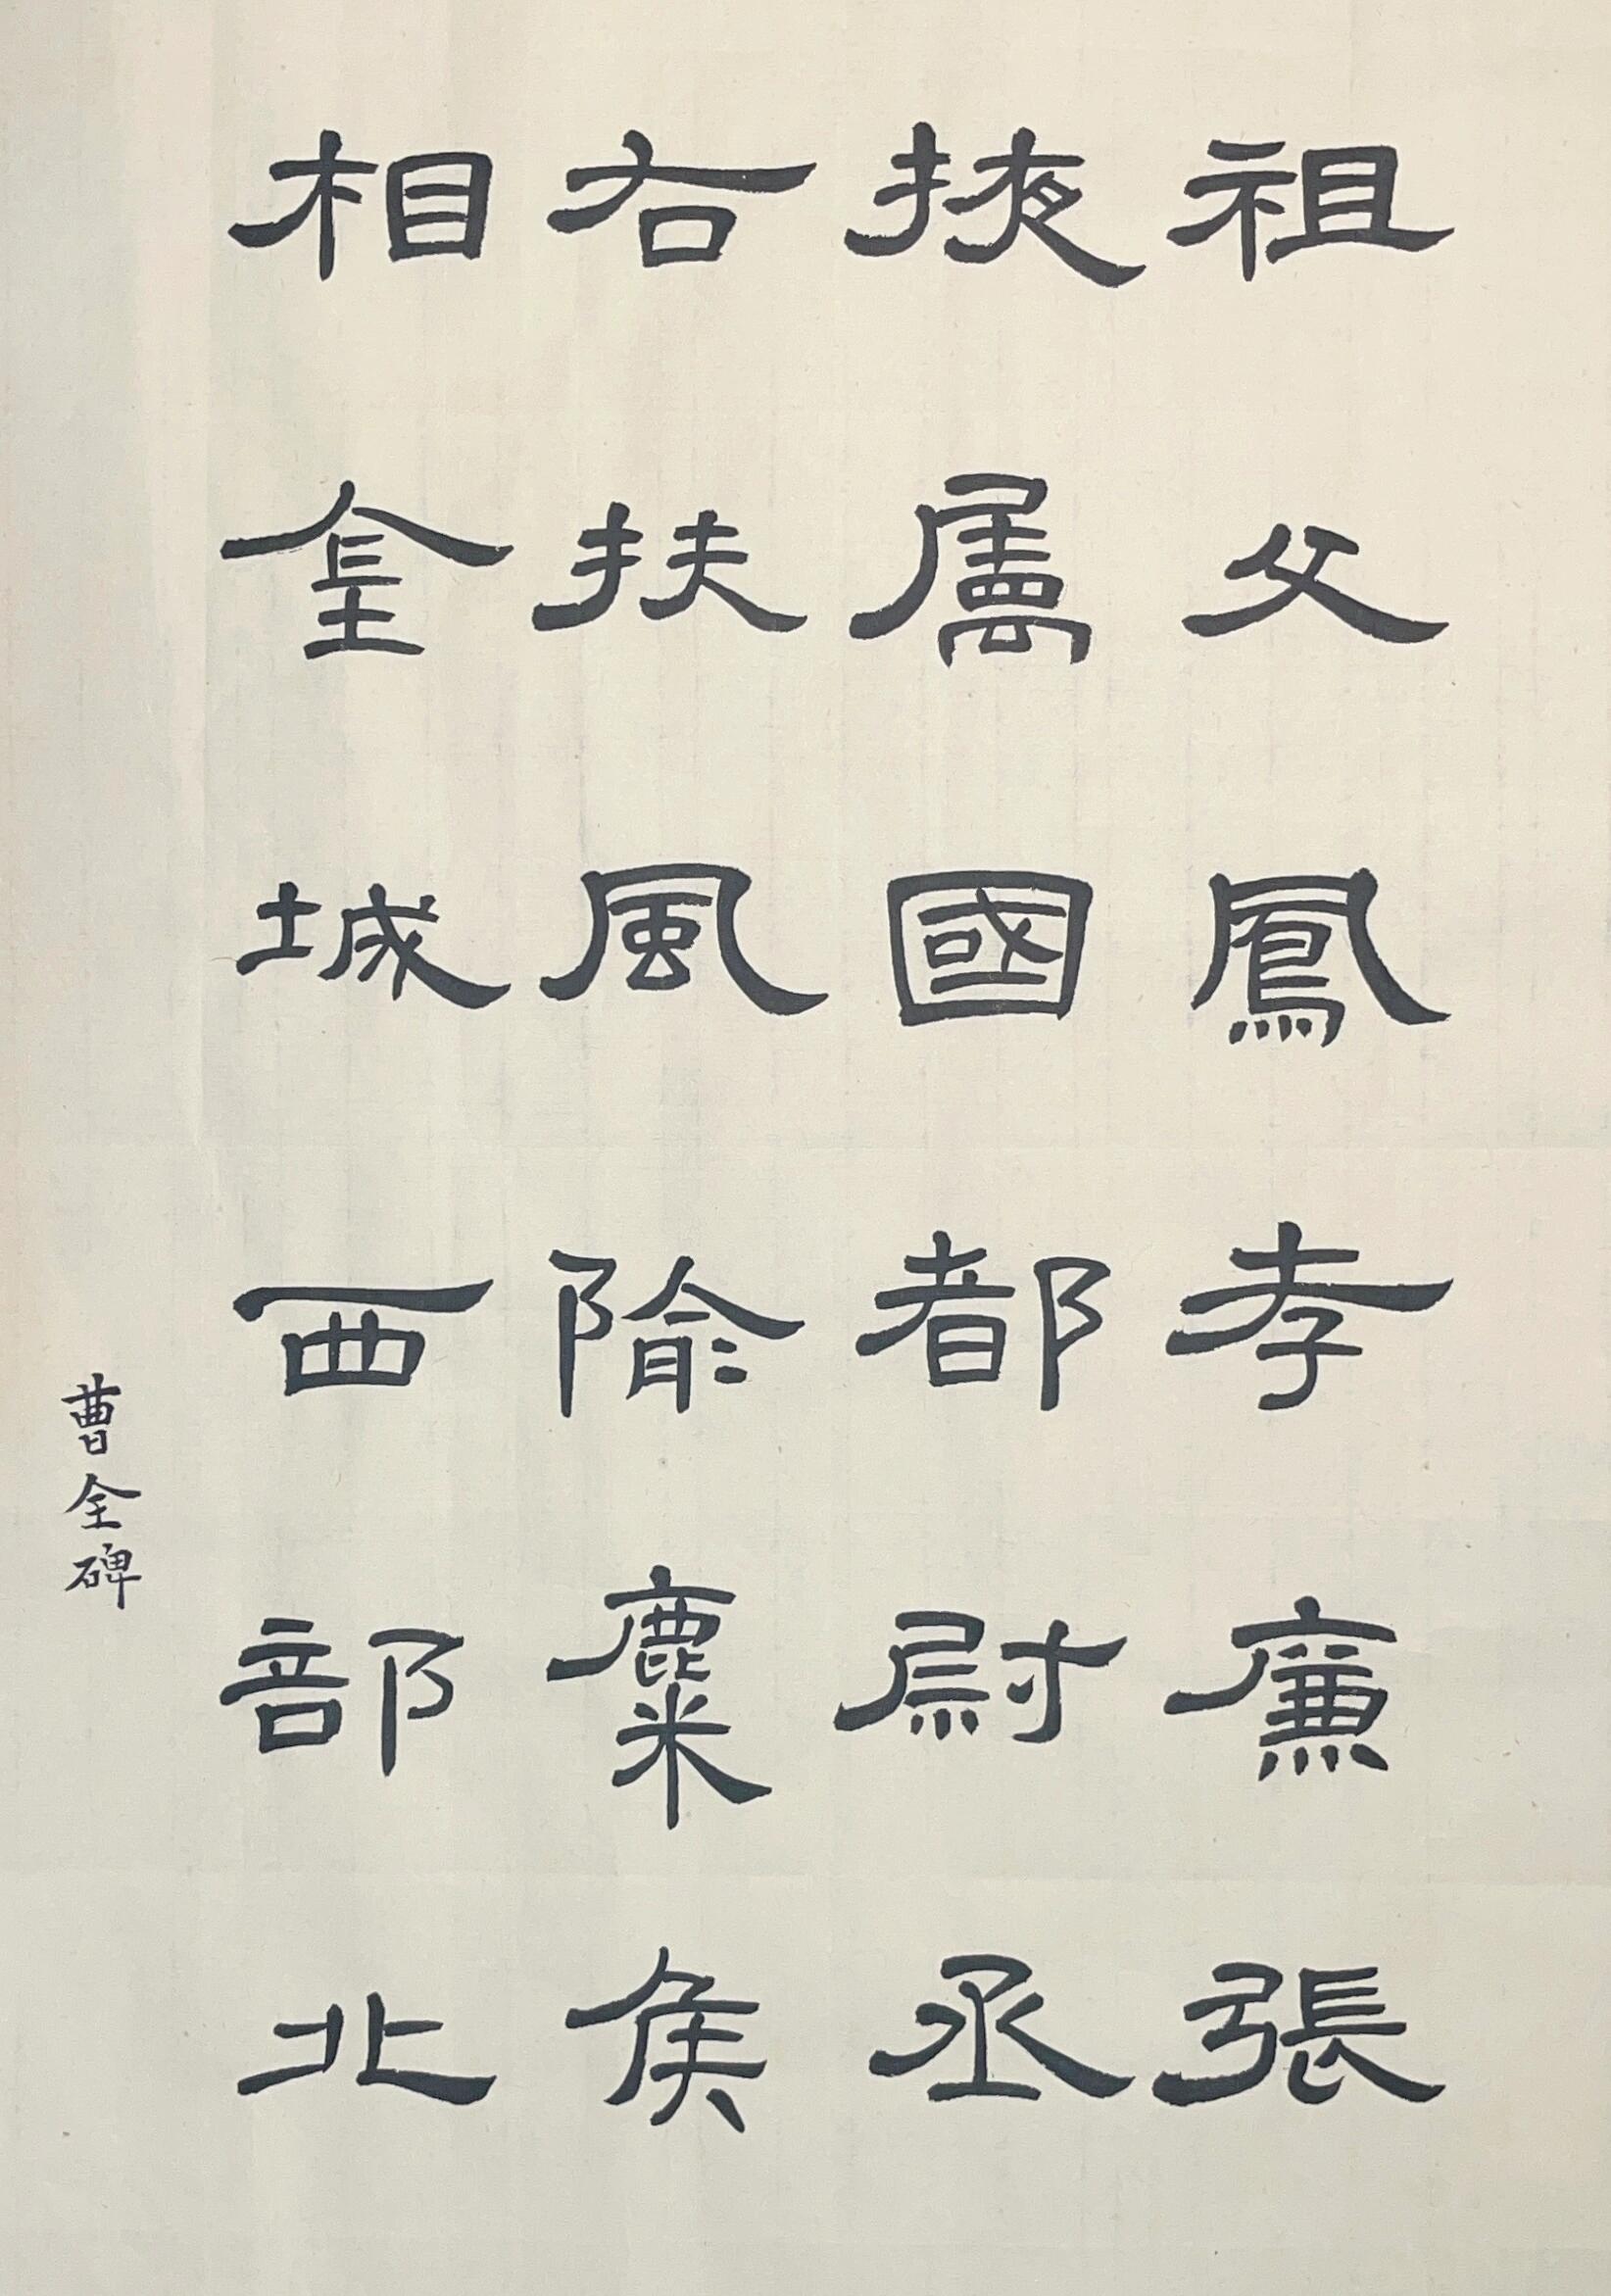 祖父鳳孝廉張
掖屬國都尉丞
右扶風隃麋侯
相金城西部北
曹全碑